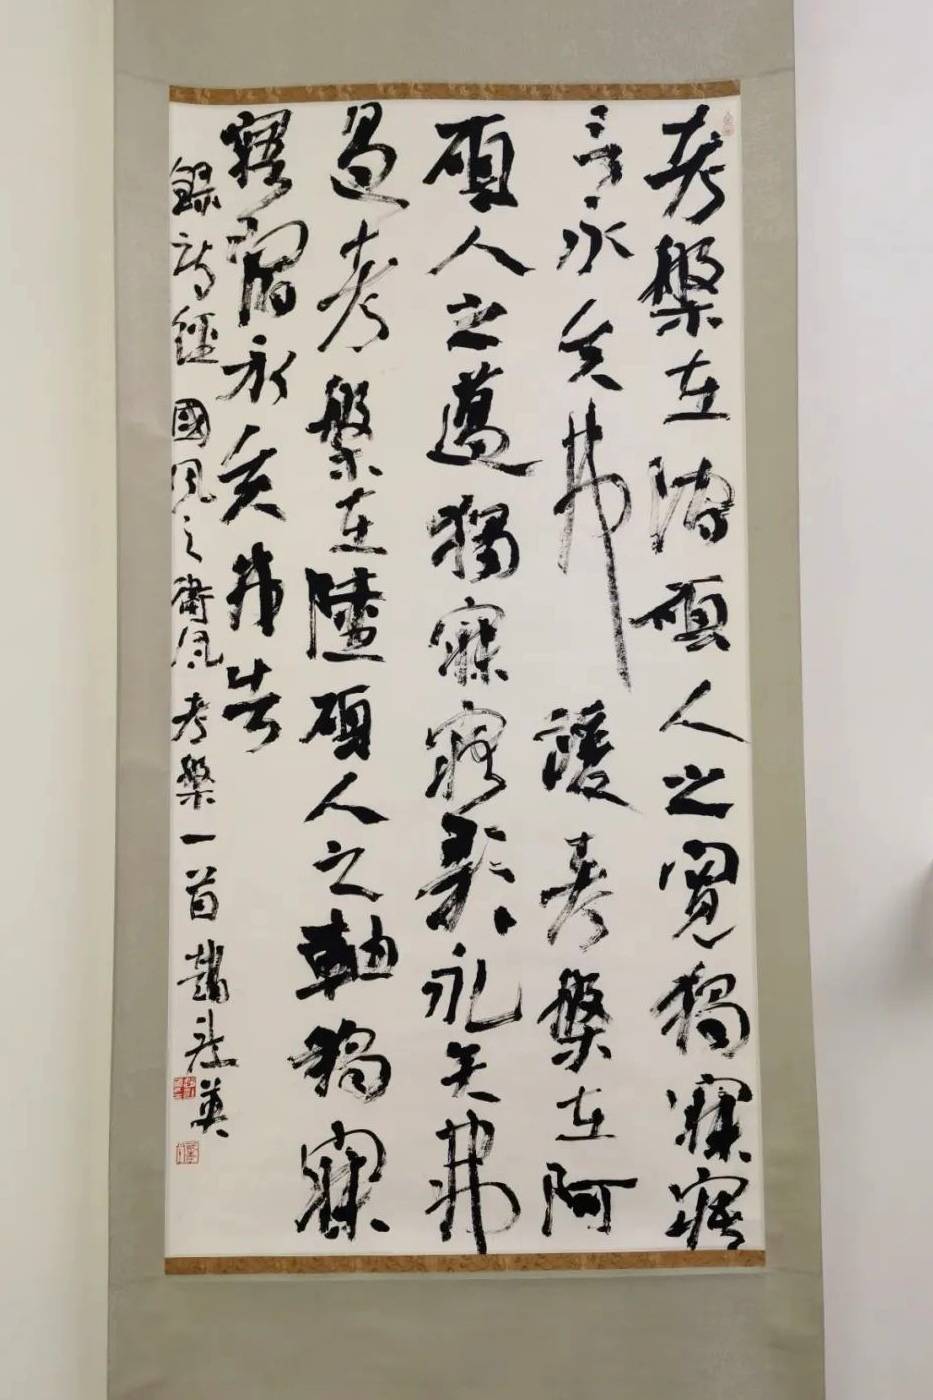 考槃在澗碩人之寬獨寐寤
言永矢弗諼考槃在阿
碩人之薖獨寐寤歌永矢弗
過考槃在陸碩人之軸獨寐
寤宿永矢弗告
錄詩經國風之衛風考槃一首趙英